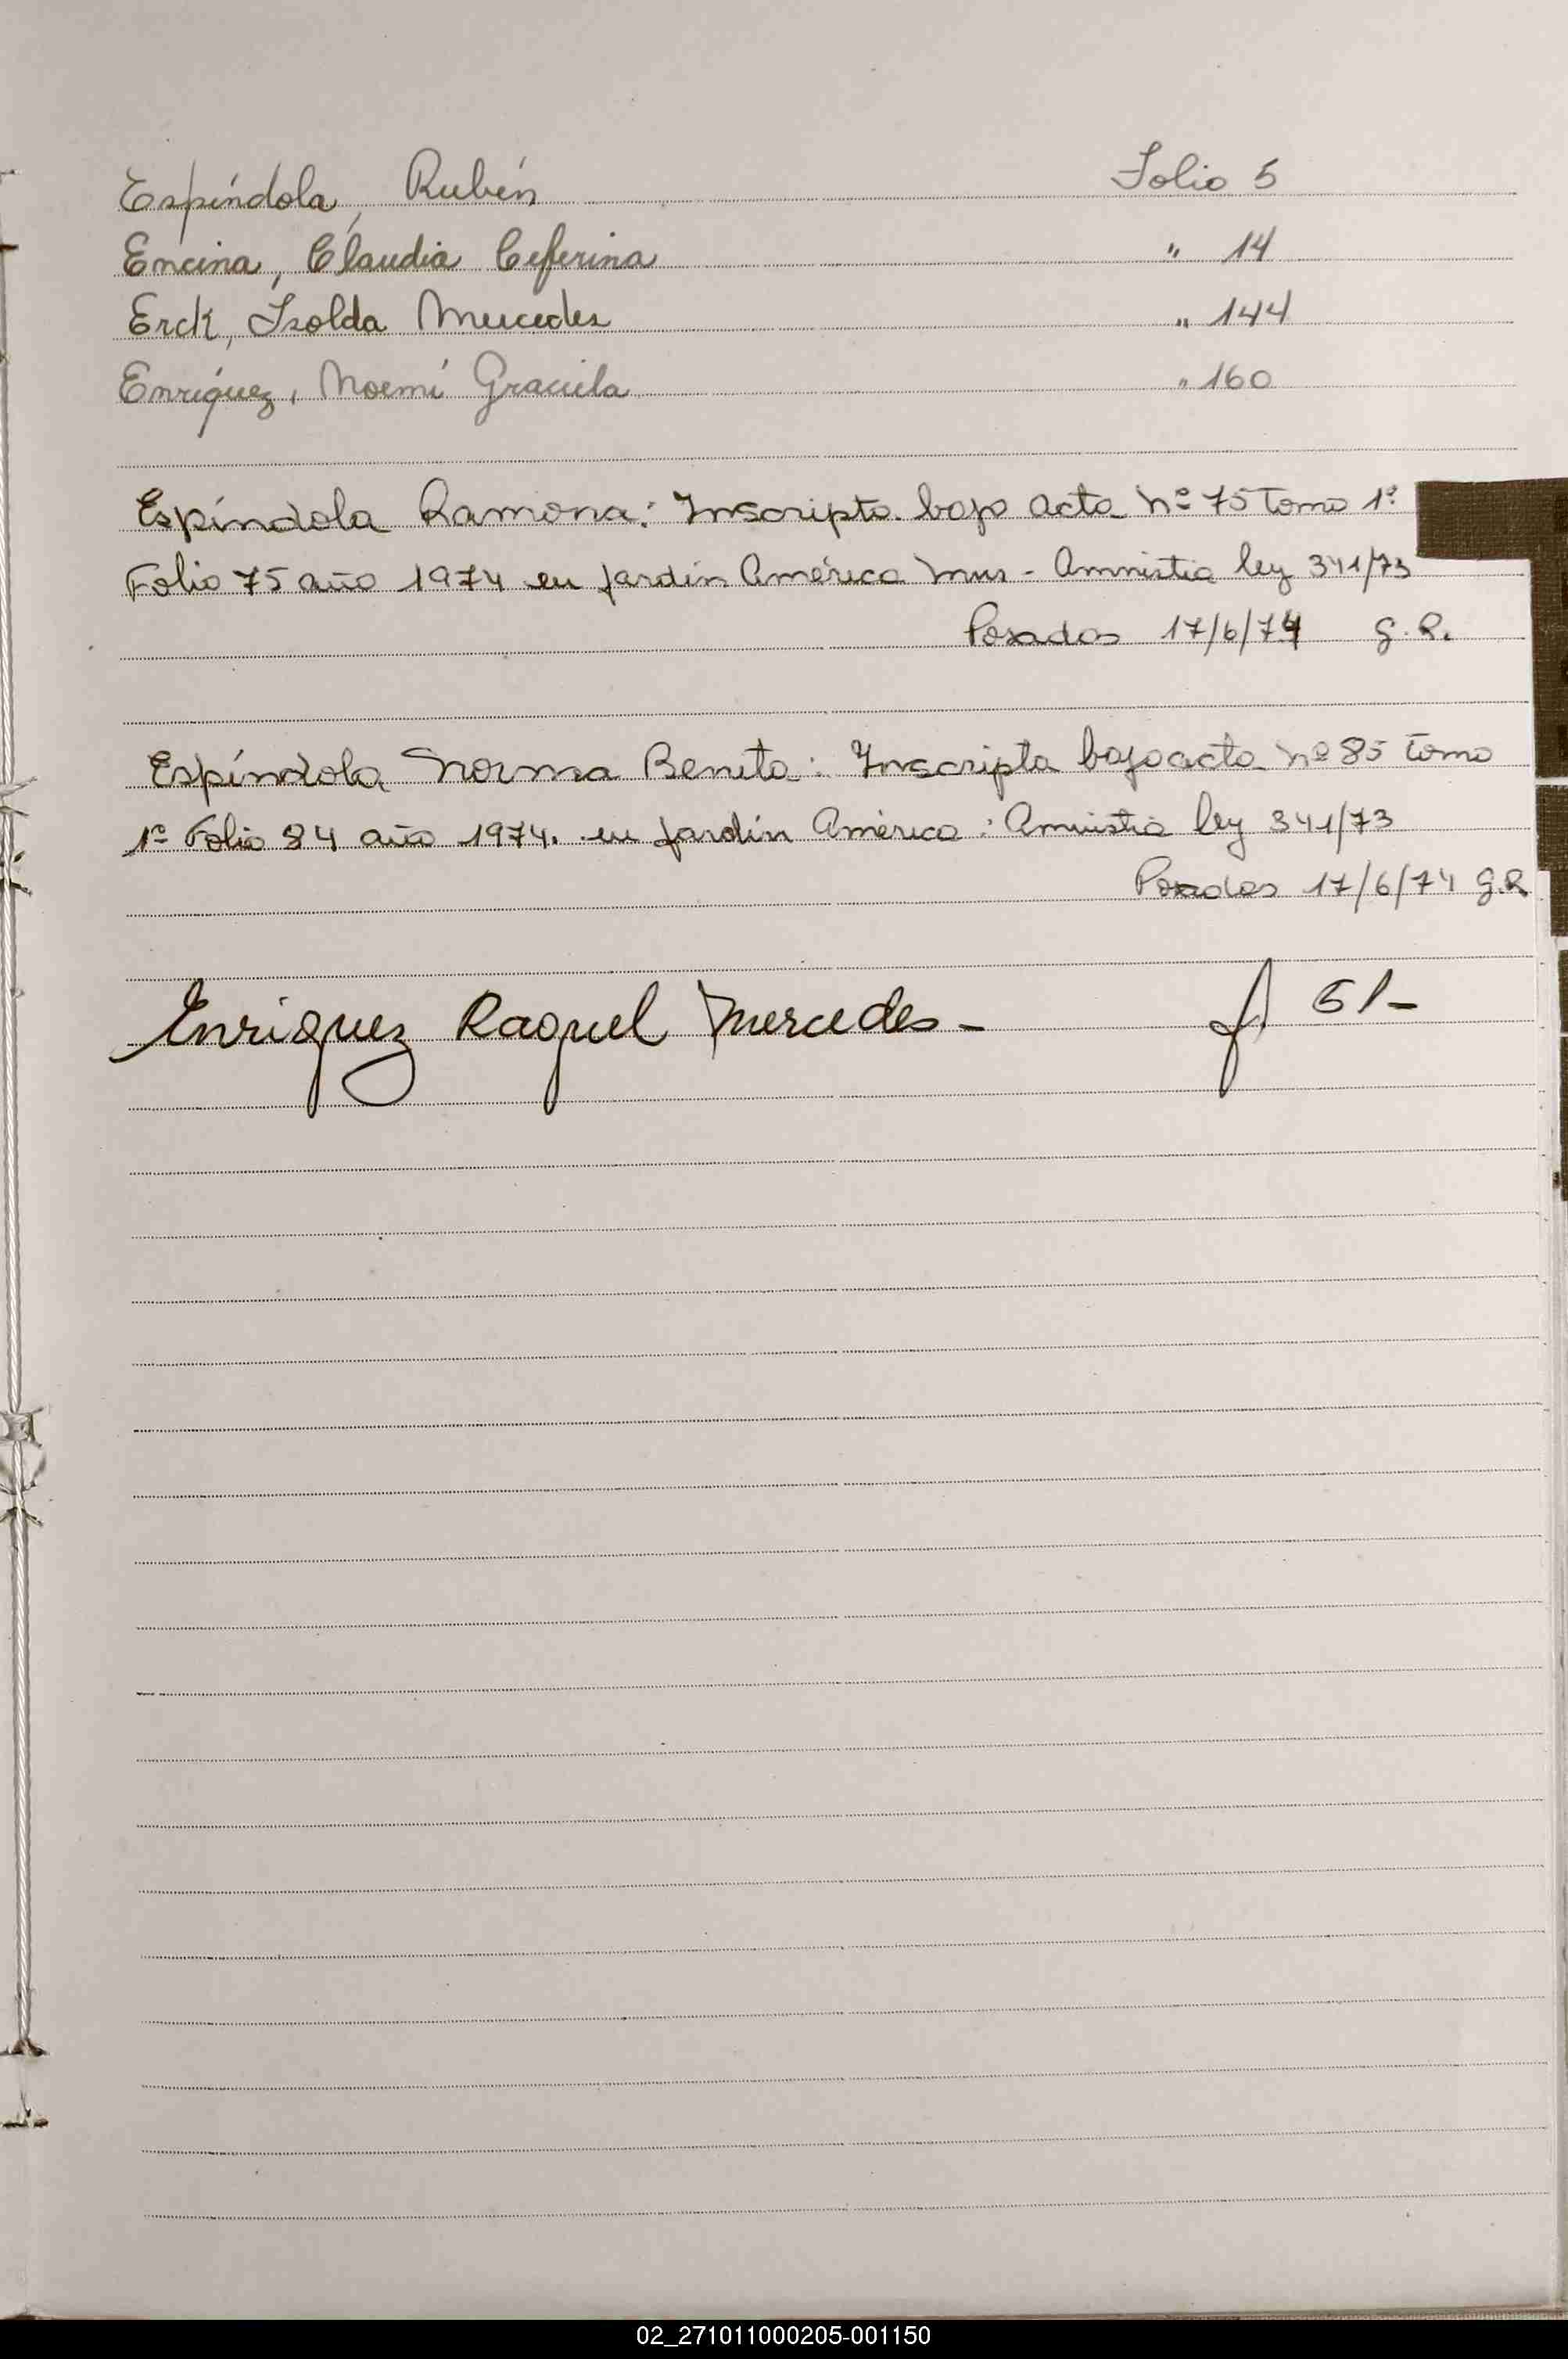 Espíndola, Rubén Folio 5
Encina, Claudia Ceferina " 14
Erck, Isolda Mercedes " 144
Enríquez, Noemí Graciela " 160
Espíndola Ramona: Inscripta bajo acta Nº 75 Tomo 1º
Folio 75 año 1974 en Jardín América Mnes - Amnistia ley 341/73
Posadas 17/6/74 G.R.
Espíndola Norma Benita: Inscripta bajo acta Nº 85 Tomo
1º Folio 84 año 1974. en Jardín América: Amnistia ley 341/73
Posadas 17/6/74 G.R.
Enriquez Raquel Mercedes - f 51-
02_271011000205-001150